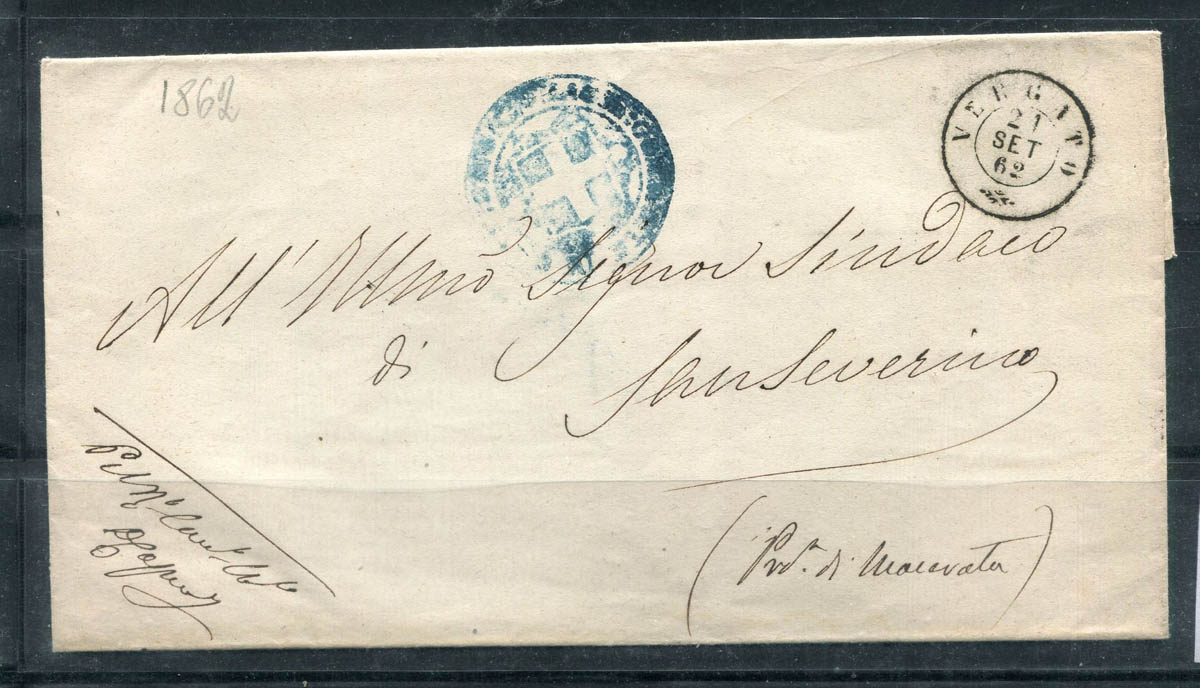 1862
VERGATO
21
SET
62
All' Illmo Signor Sindaco
di
San Severino
(Prov.a di Macerata)